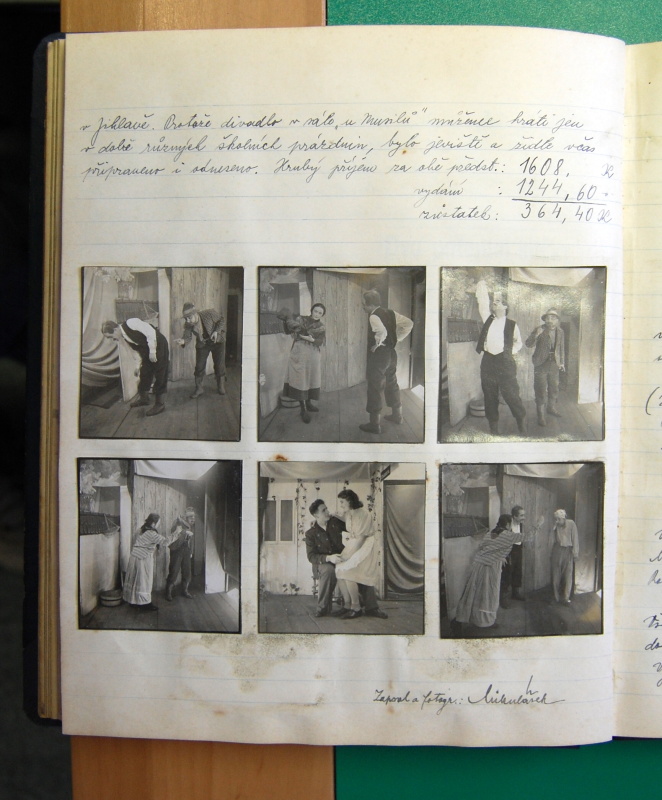 v Jihlavě. Protože divadlo v sále „u Musilů" můžeme hráti jen
v době různých školních prázdnin, bylo jeviště a židle včas
připraveno i odneseno. Hrubý příjem za obě předst.: 1608, Kč
vydání : 1244,60 "
zůstatek: 364,40 Kč
Zapsal a fotogr.: Mikulášek